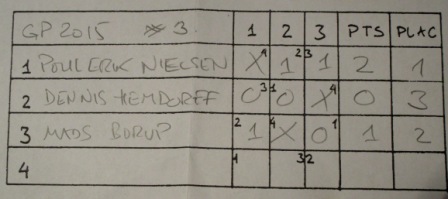 GP 2015 #3. 1 2 3 PTS PLAC
1 POUL ERIK NIELSEN X 4 1 2 3 1 2 1
2 DENNIS HEMDORFF 0 3 1 0 X 4 0 3
3 MADS BORUP 2 1 4 X 0 1 1 2
4 1 3 2